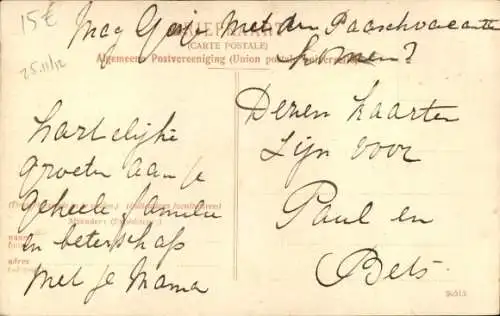 15€
25/11/12
Mag Gerrie Met den Paaschvacantie
komen?
BRIEFKAART
(CARTE POSTALE)
Algemeene Postvereeniging (Union postale universelle)
hartelijke
groeten aan je
geheele familie
en beterschap
met je Mama
Dezen kaarten
zijn voor
Paul en
Bets